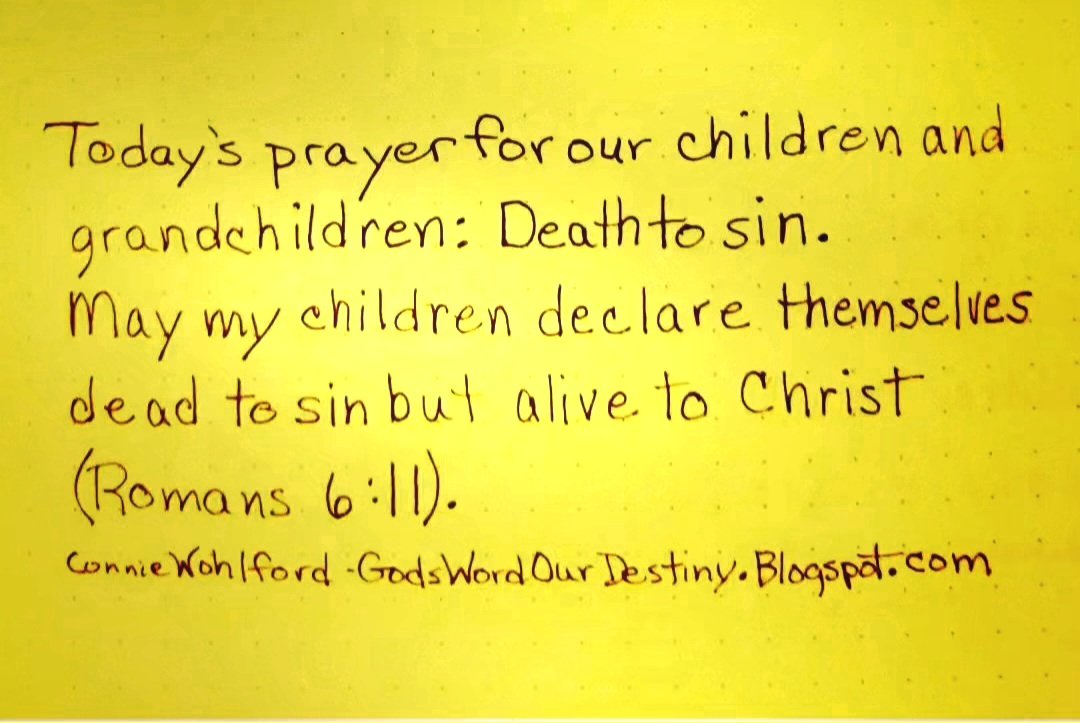 Today's prayer for our children and
grandchildren: Death to sin.
May my children declare themselves
dead to sin but alive to Christ
(Romans 6:11).
Connie Wohlford - GodsWordOurDestiny.Blogspot.com